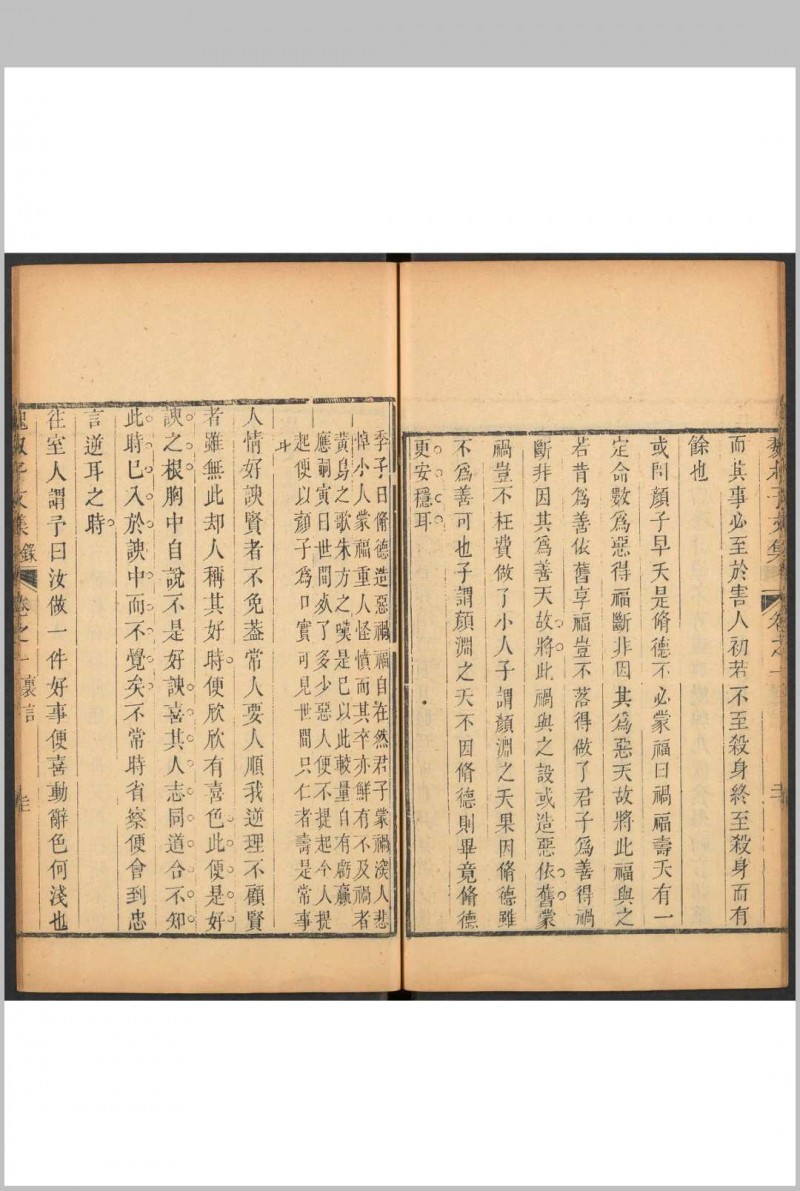 而其事必至於害人初若不至殺身終至殺身而有
餘也
或問顏子早夭是脩德不必蒙福曰禍福壽夭有一
定命數爲惡得福斷非因其爲惡天故將此福與之
若昔爲善依舊享福豈不落得做了君子爲善得禍
斷非因其爲善天故將此禍與之設或造惡依舊蒙
禍豈不枉費做了小人子謂顏淵之夭果因脩德雖
不爲善可也子謂顏淵之夭不因脩德則畢竟脩德
更安穩耳
季子曰脩德造惡禍福自在然君子蒙禍溪人悲
悼小人蒙福重人怪憤而其卒亦鮮有不及禍者
黃鳥之歌朱方之嘆是已以此較量自有虧贏
應嗣寅曰世間殀了多少惡人便不提起今人提
起便以顏子爲口實可見世間只仁者壽是常事
耳
人情好諛賢者不免葢常人要人順我逆理不顧賢
者雖無此却人稱其好時便欣欣有喜色此便是好
諛之根胸中自說不是好諛喜其人志同道合不知
此時已入於諛中而不覺矣不常時省察便會到忠
言逆耳之時
往室人謂予曰汝做一件好事便喜動辭色何淺也
魏叔子文集 錄 卷之一 裏言